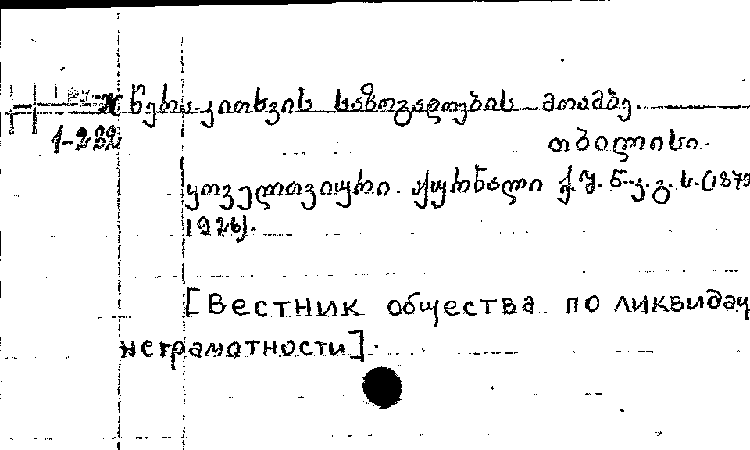 წერა-კითხვის საზოგადოების მოამბე.
1-232
თბილისი.
ყოველთვიური. ჟურნალი ქ. შ. წ. კ. გ. ს. (1879
1926).
[Вестник общества по ликвидац
неграмотности].